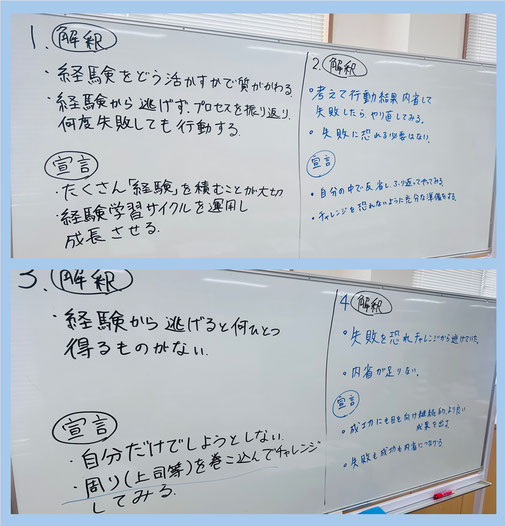 1. 解釈
・経験をどう活かすかで質がかわる
・経験から逃げず、プロセスを振り返り、
何度失敗しても行動する.
宣言
・たくさん「経験」を積むことが大切
・経験学習サイクルを運用し
成長させる.
2. 解釈
・考えて行動結果内省して
失敗したら、やり直してみる。
・失敗に恐れる必要はない。
宣言
・自分の中で反省し、ふり返ってやってみる。
・チャレンジを恐れないように充分な準備をする。
3. 解釈
・経験から逃げると何ひとつ
得るものがない.
宣言
・自分だけでしようとしない.
・周り(上司等)を巻き込んでチャレンジ
してみる.
4 解釈
・失敗を恐れチャレンジから逃げていた。
・内省が足りない。
宣言
・成功にも目を向け継続的、より良い
成果を出す
・失敗も成功も内省につなげる